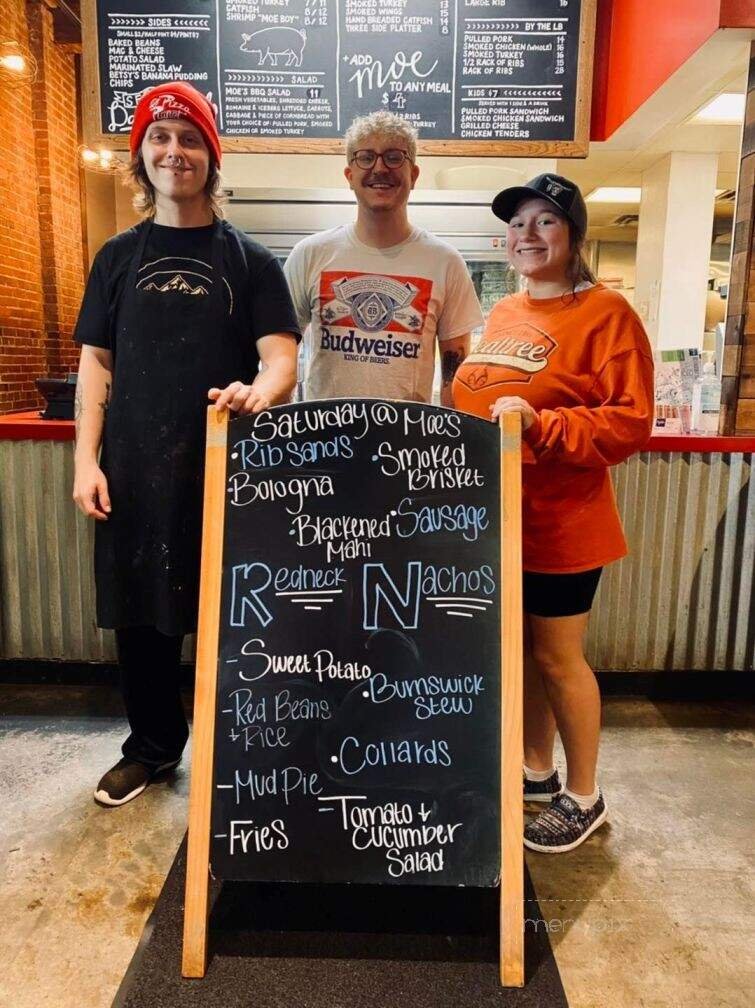 SMOKED TURKEY 7/11
CATFISH 8/12
SHRIMP "MOE BOY" 8/12
SMOKED TURKEY 13
SMOKED WINGS 15
HAND BREADED CATFISH 14
THREE SIDE PLATTER 8
LARGE RIB 16
SIDES
BAKED BEANS
MAC & CHEESE
POTATO SALAD
MARINATED SLAW
BETSY'S BANANA PUDDING
CHIPS
SALAD
MOE'S BBQ SALAD 11
FRESH VEGETABLES, SHREDDED CHEESE,
ROMAINE & ICEBERG LETTUCE, CARROTS,
CABBAGE & PIECE OF CORNBREAD WITH
YOUR CHOICE OF: PULLED PORK, SMOKED
CHICKEN OR SMOKED TURKEY
+ADD
moe
TO ANY MEAL
$4
BY THE LB
PULLED PORK 14
SMOKED CHICKEN (WHOLE) 16
SMOKED TURKEY 16
1/2 RACK OF RIBS 15
RACK OF RIBS 28
KIDS $7
SERVED WITH 1 SIDE & A DRINK
PULLED PORK SANDWICH
SMOKED CHICKEN SANDWICH
GRILLED CHEESE
CHICKEN TENDERS
Pizza
Budweiser
KING OF BEERS.
Realtree
Saturday @ Moe's
• Rib Sands
• Smoked Brisket
• Bologna
• Blackened Mahi
• Sausage
Redneck Nachos
- Sweet Potato
• Burnswick Stew
- Red Beans
+ Rice
• Collards
- Mud Pie
- Tomato +
Cucumber
Salad
- Fries
menupix